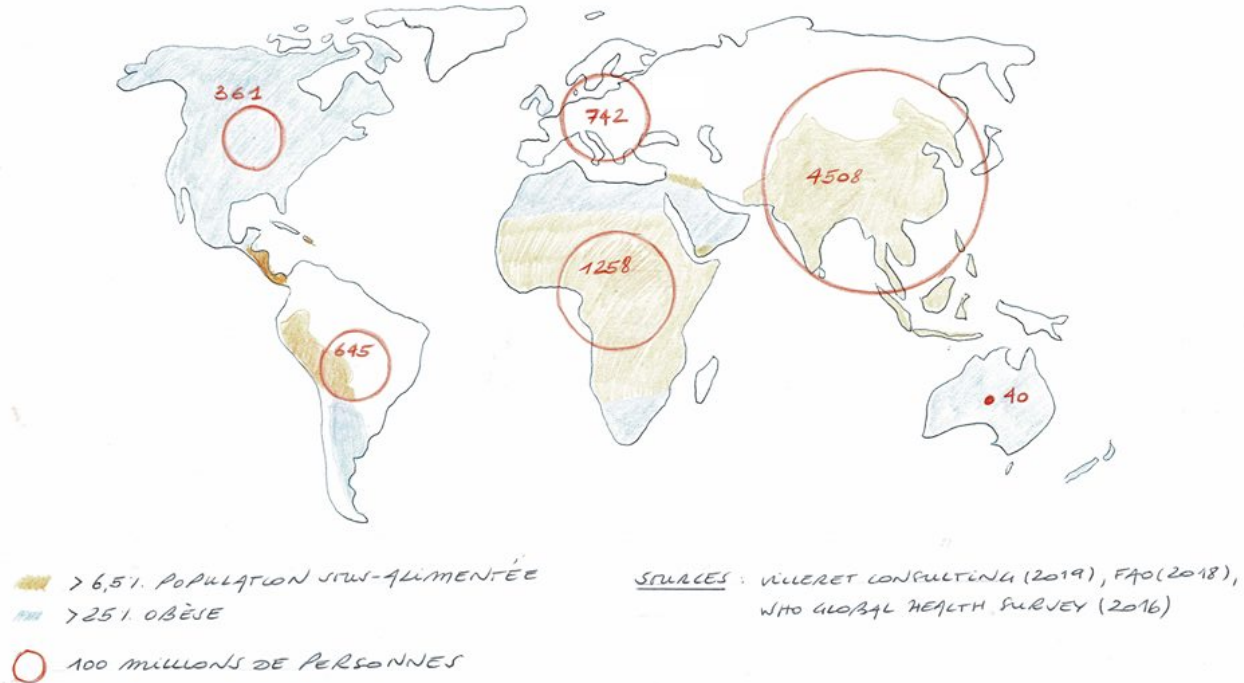 361
742
4508
1258
645
40
> 6,5%. POPULATION SOUS-ALIMENTÉE
> 25%. OBÈSE
100 MILLIONS DE PERSONNES
SOURCES : VILLERET CONSULTING (2019), FAO (2018),
WHO GLOBAL HEALTH SURVEY (2016)